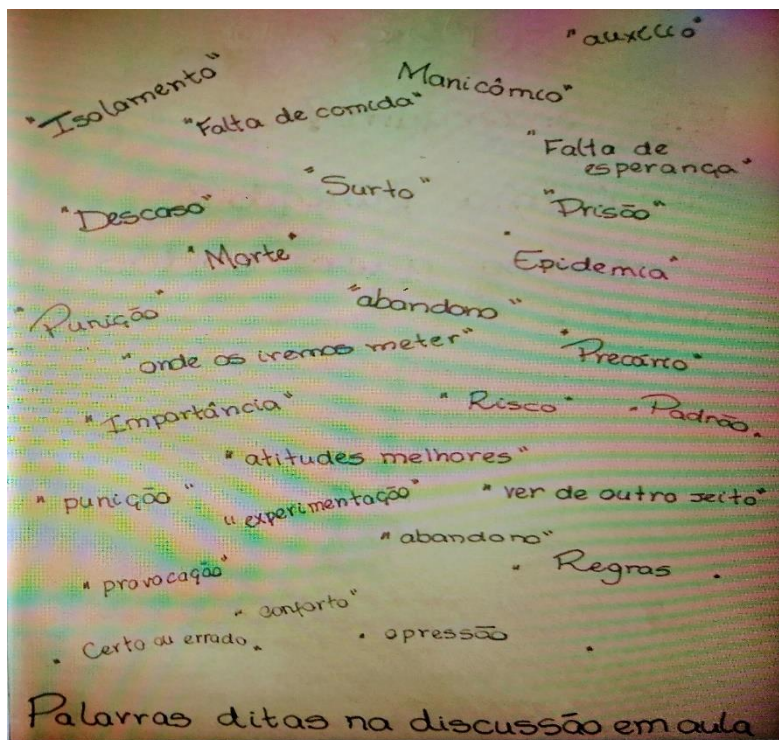 "auxílio"
"Isolamento"
Manicômio"
"Falta de comida"
"Falta de
esperança"
"Surto"
"Descaso"
"Prisão"
"Morte"
"Epidemia"
"Punição"
"abandono"
"onde os iremos meter"
"Precário"
"Importância"
"Risco"
"Padrão"
"atitudes melhores"
"punição"
"experimentação"
"ver de outro jeito"
"abandono"
"provocação"
"Regras"
"conforto"
"Certo ou errado"
"opressão"
Palavras ditas na discussão em aula